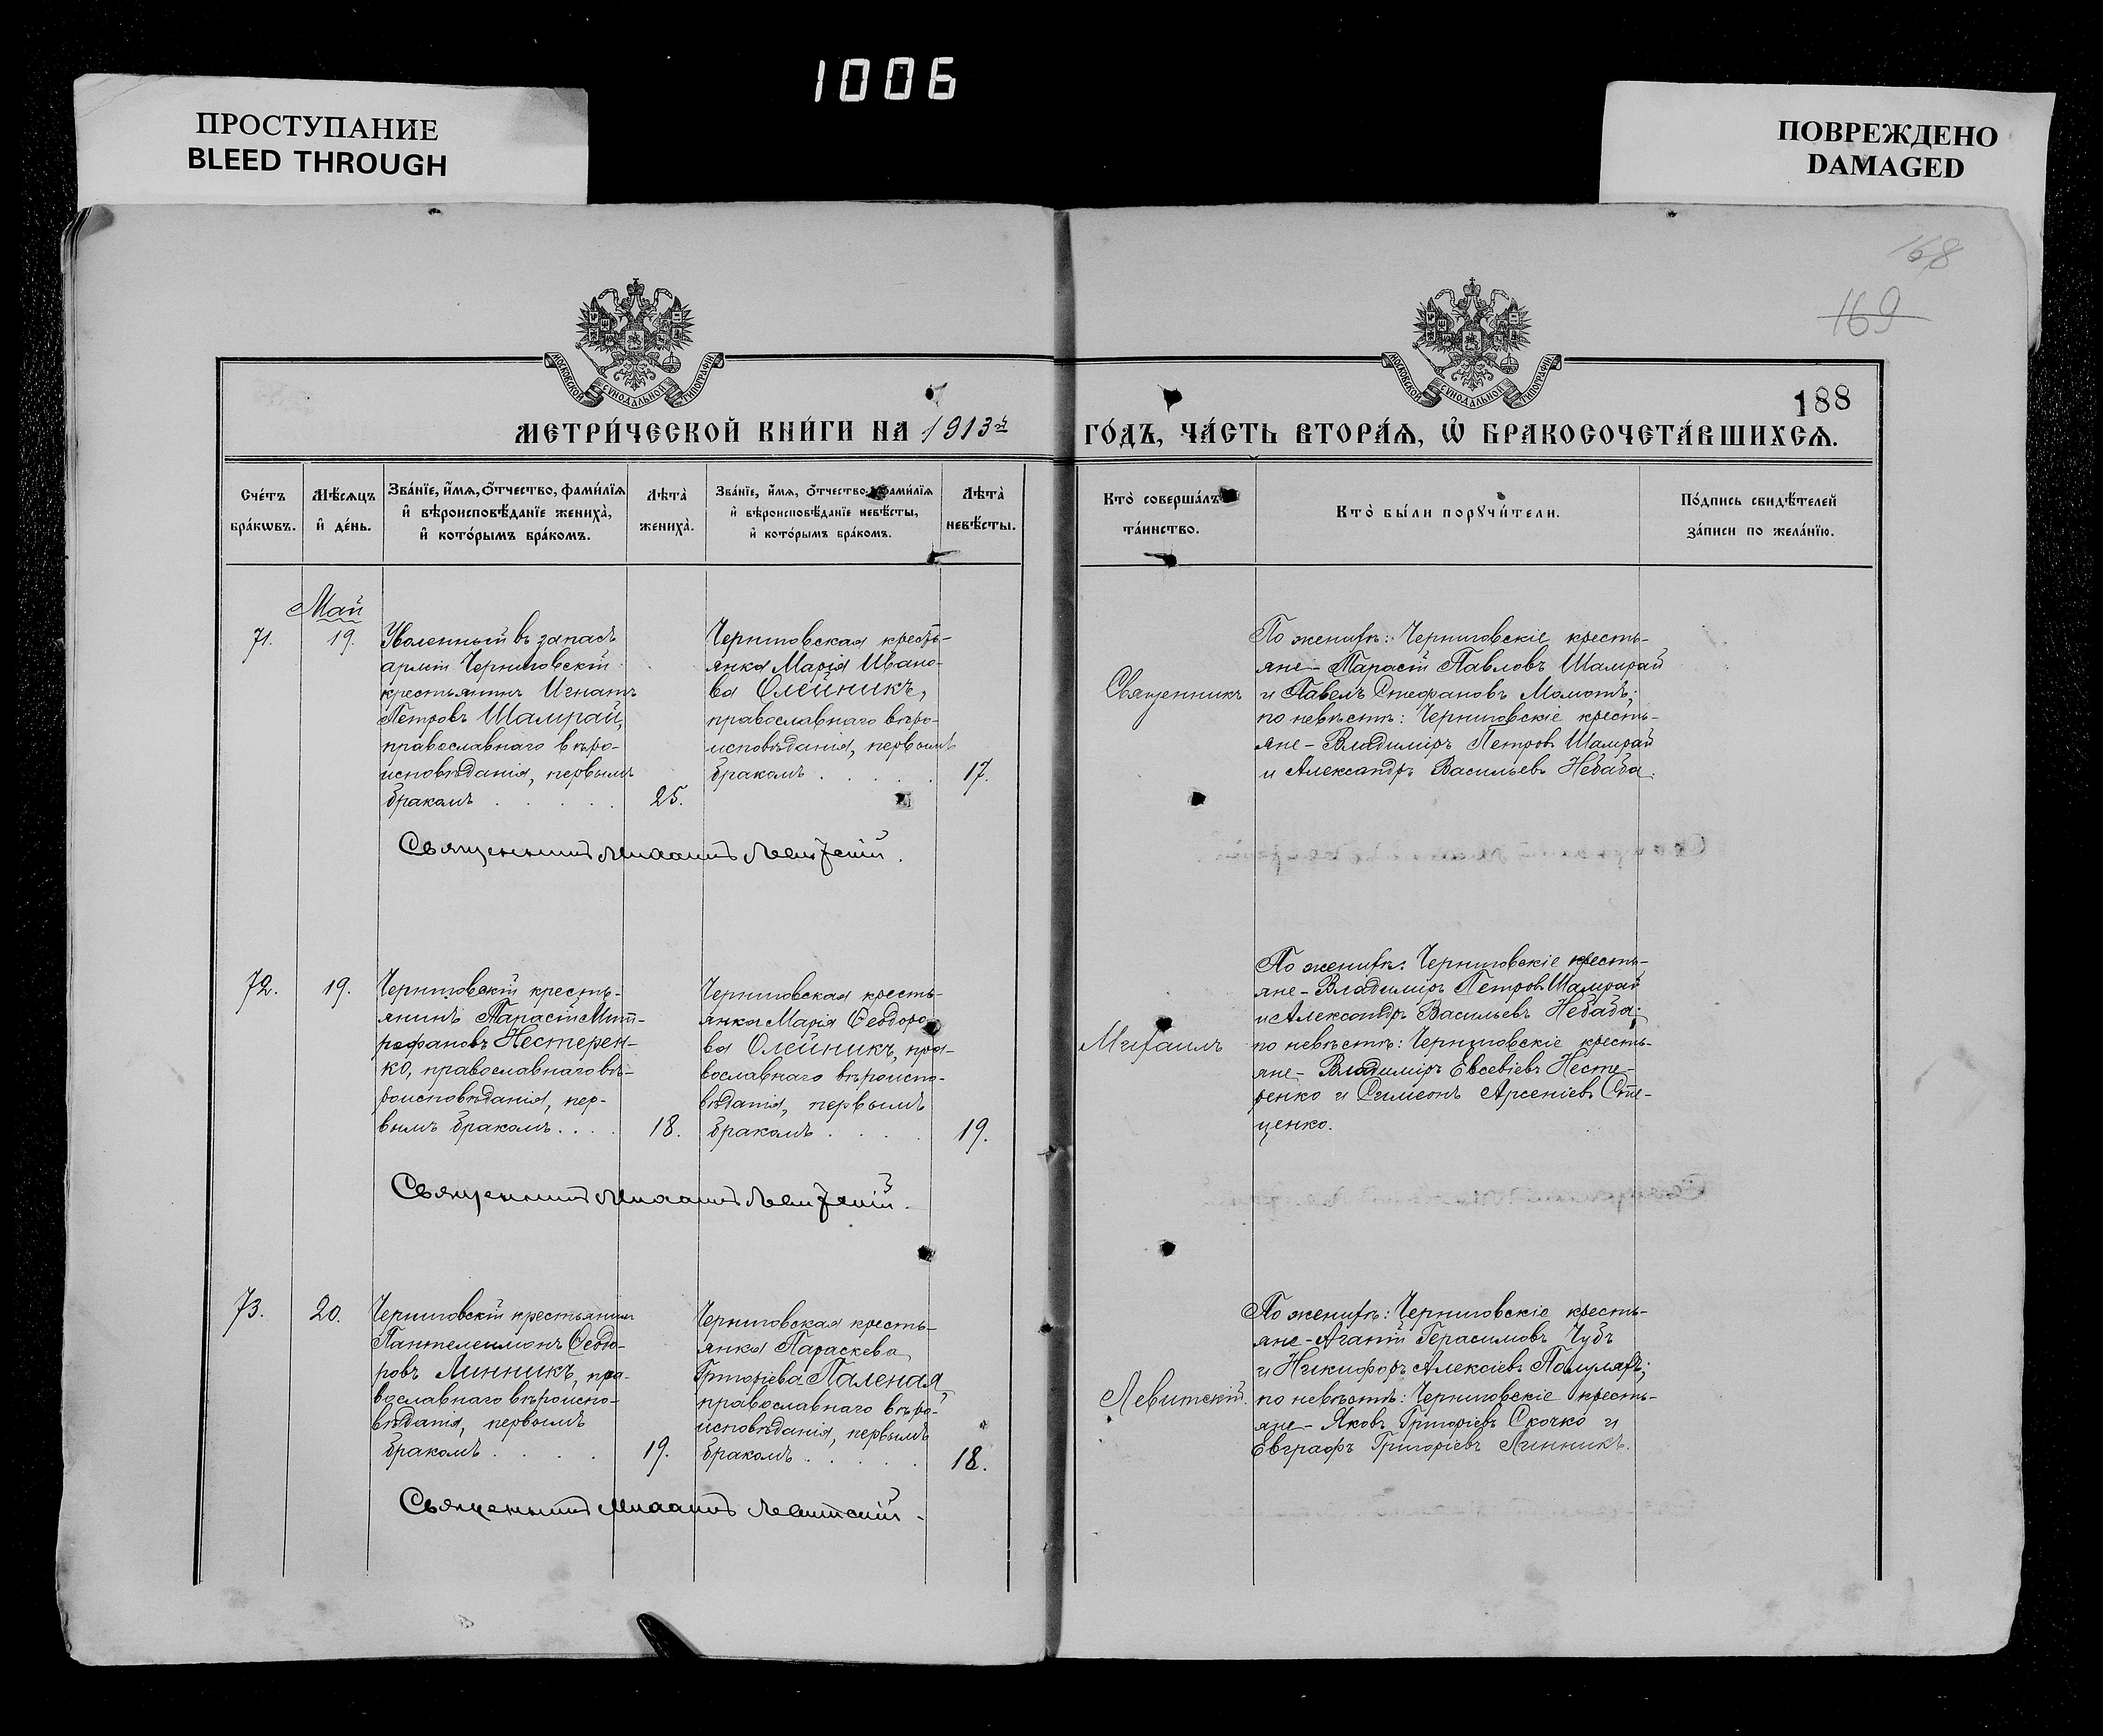 1006
ПРОСТУПАНИЕ
BLEED THROUGH
ПОВРЕЖДЕНО
DAMAGED
168
169
188
МОСКОВСКОЙ СѴНОДАЛЬНОЙ ТИПОГРАФІИ
МОСКОВСКОЙ СѴНОДАЛЬНОЙ ТИПОГРАФІИ
МЕТРИ́ЧЕСКОЙ КНИ́ГИ НА 1913й
ГО́ДЪ, ЧА́СТЬ ВТОРА́Я, Ѡ БРАКОСОЧЕТА́ВШИХСѦ.
Сче́тъ бра́кѡвъ.
Мѣ́сяцъ и де́нь.
Зва́нїе, и́мя, о́тчество, фами́лїя и вѣроисповѣ́данїе жениха̀, и кото́рымъ бра́комъ.
Лѣта̀ жениха̀.
Зва́нїе, и́мя, о́тчество, фами́лїя и вѣроисповѣ́данїе невѣ́сты, и кото́рымъ бра́комъ.
Лѣта̀ невѣ́сты.
Кто̀ соверша́лъ та́инство.
Кто̀ бы́ли порꙋчи́тели.
По́дпись свидѣ́телей за́писи по жела́нїю.
Май
71.
19.
Уволенный въ запасъ
арміи Черниговскій
крестьянинъ Игнатъ
Петровъ Шамрай,
православнаго вѣро-
исповѣданія, первымъ
бракомъ . . . . .
25.
Черниговская кресть-
янка Марія Ивано-
ва Олейникъ,
православнаго вѣро-
исповѣданія, первымъ
бракомъ . . . . .
17.
Священникъ
По женихѣ: Черниговскіе кресть-
яне - Тарасій Павловъ Шамрай
и Павелъ Стефановъ Момотъ;
по невѣстѣ: Черниговскіе кресть-
яне - Владиміръ Петровъ Шамрай
и Александръ Васильевъ Небаба.
Священникъ Михаилъ Левитскій.
72.
19.
Черниговскій кресть-
янинъ Тарасій Мит-
рофановъ Нестерен-
ко, православнаго вѣ-
роисповѣданія, пер-
вымъ бракомъ. . .
18.
Черниговская кресть-
янка Марія Ѳеодоро-
ва Олейникъ, пра-
вославнаго вѣроиспо-
вѣданія, первымъ
бракомъ . . . .
19.
Михаилъ
По женихѣ: Черниговскіе кресть-
яне - Владиміръ Петровъ Шамрай
и Александръ Васильевъ Небаба;
по невѣстѣ: Черниговскіе кресть-
яне - Владиміръ Евсевіевъ Несте-
ренко и Симеонъ Арсеніевъ Сте-
ценко.
Священникъ Михаилъ Левитскій.
73.
20.
Черниговскій крестьянинъ
Пантелеимонъ Ѳеодо-
ровъ Линникъ, пра-
вославнаго вѣроиспо-
вѣданія, первымъ
бракомъ . . . .
19.
Черниговская кресть-
янка Параскева
Григоріева Паленая,
православнаго вѣро-
исповѣданія, первымъ
бракомъ . . . . .
18.
Левитскій.
По женихѣ: Черниговскіе кресть-
яне - Агапій Герасимовъ Чубъ
и Никифоръ Алексіевъ
по невѣстѣ: Черниговскіе кресть-
яне - Яковъ Григоріевъ Скочко и
Евграфъ Григоріевъ Линникъ.
Священникъ Михаилъ Левитскій.